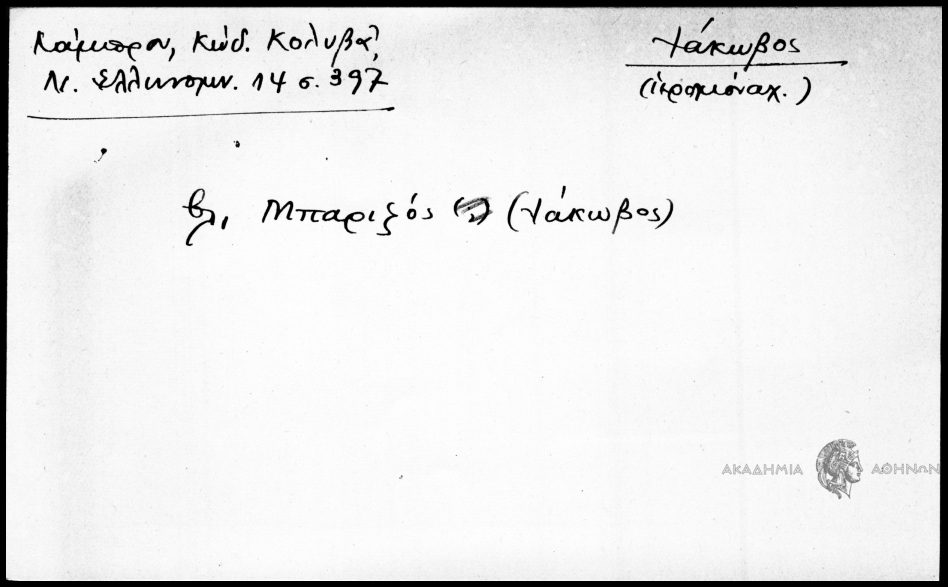 Λάμπρου, Κώδ. Κολυβᾶ,
Ν. Ἑλληνομν. 14 σ. 397
Ἰάκωβος
(ἱερομόναχ.)
βλ. Μπαριξός (Ἰάκωβος)
ΑΚΑΔΗΜΙΑ ΑΘΗΝΩΝ